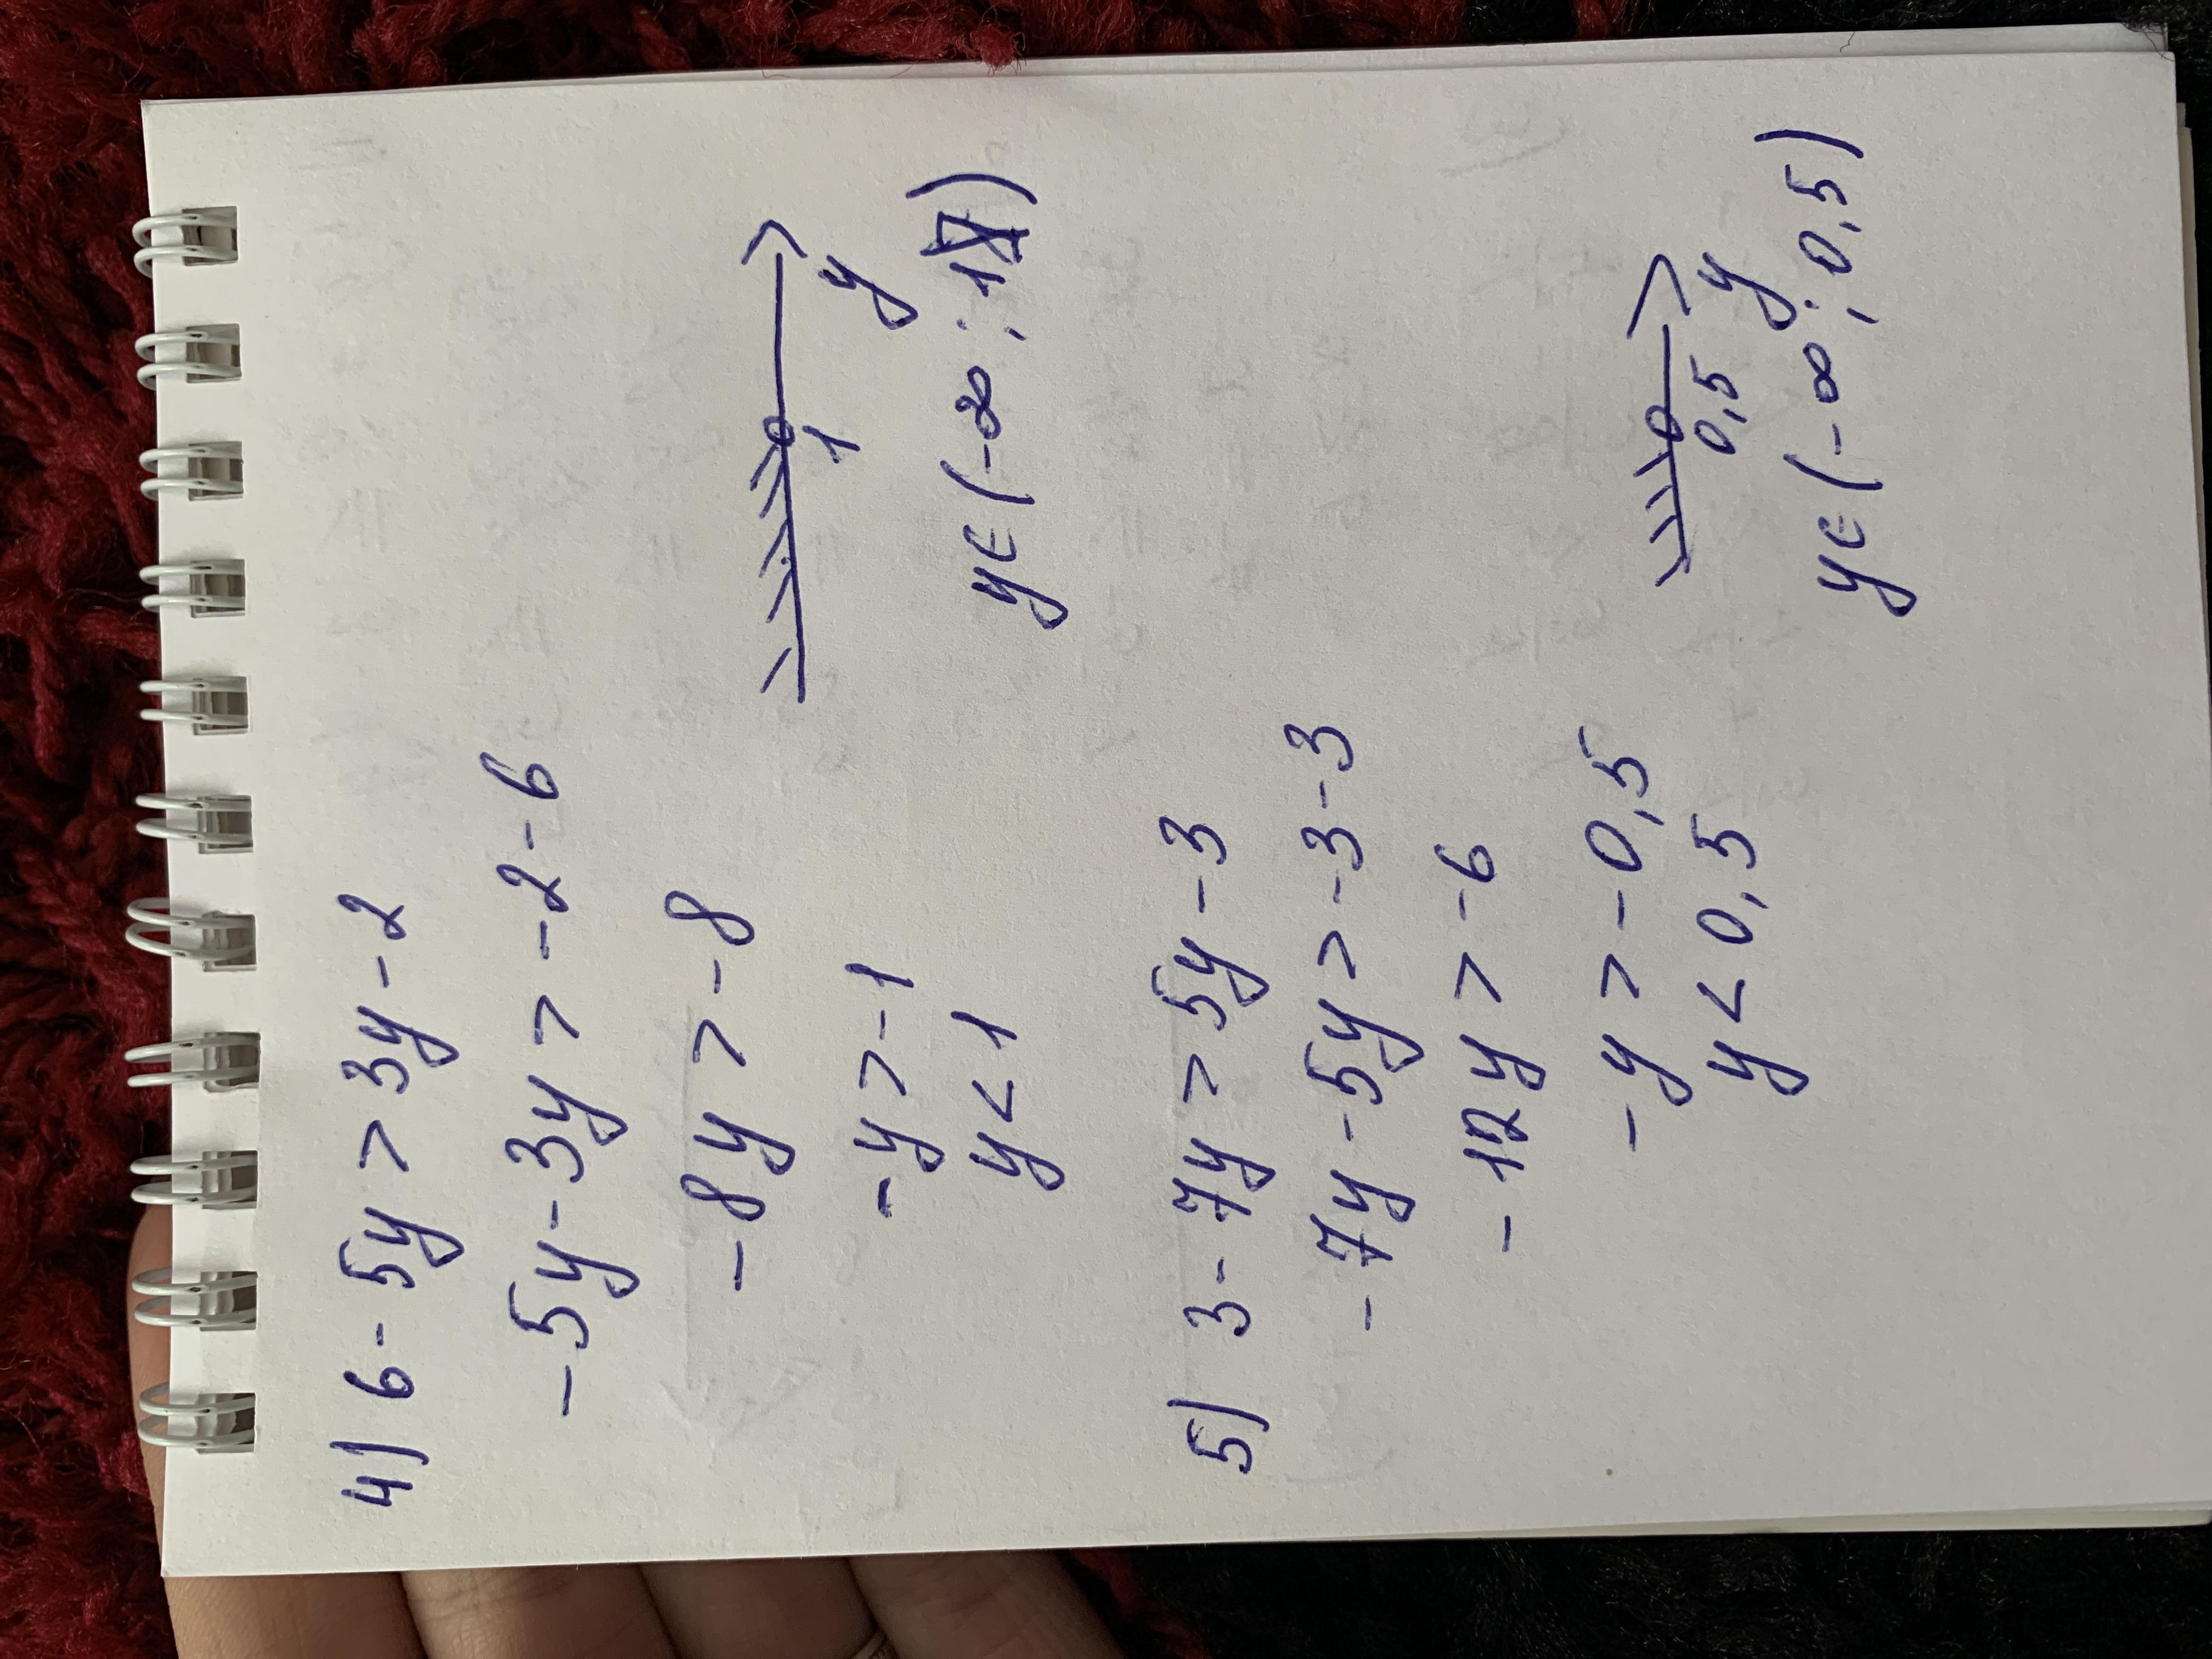 4) 6 - 5y > 3y - 2
-5y - 3y > -2 - 6
-8y > -8
-y > -1
y < 1
1
y
y ∈ (-∞ ; 1)
5) 3 - 7y > 5y - 3
-7y - 5y > -3 - 3
-12y > -6
-y > -0,5
y < 0,5
0,5 y
y ∈ (-∞ ; 0,5)